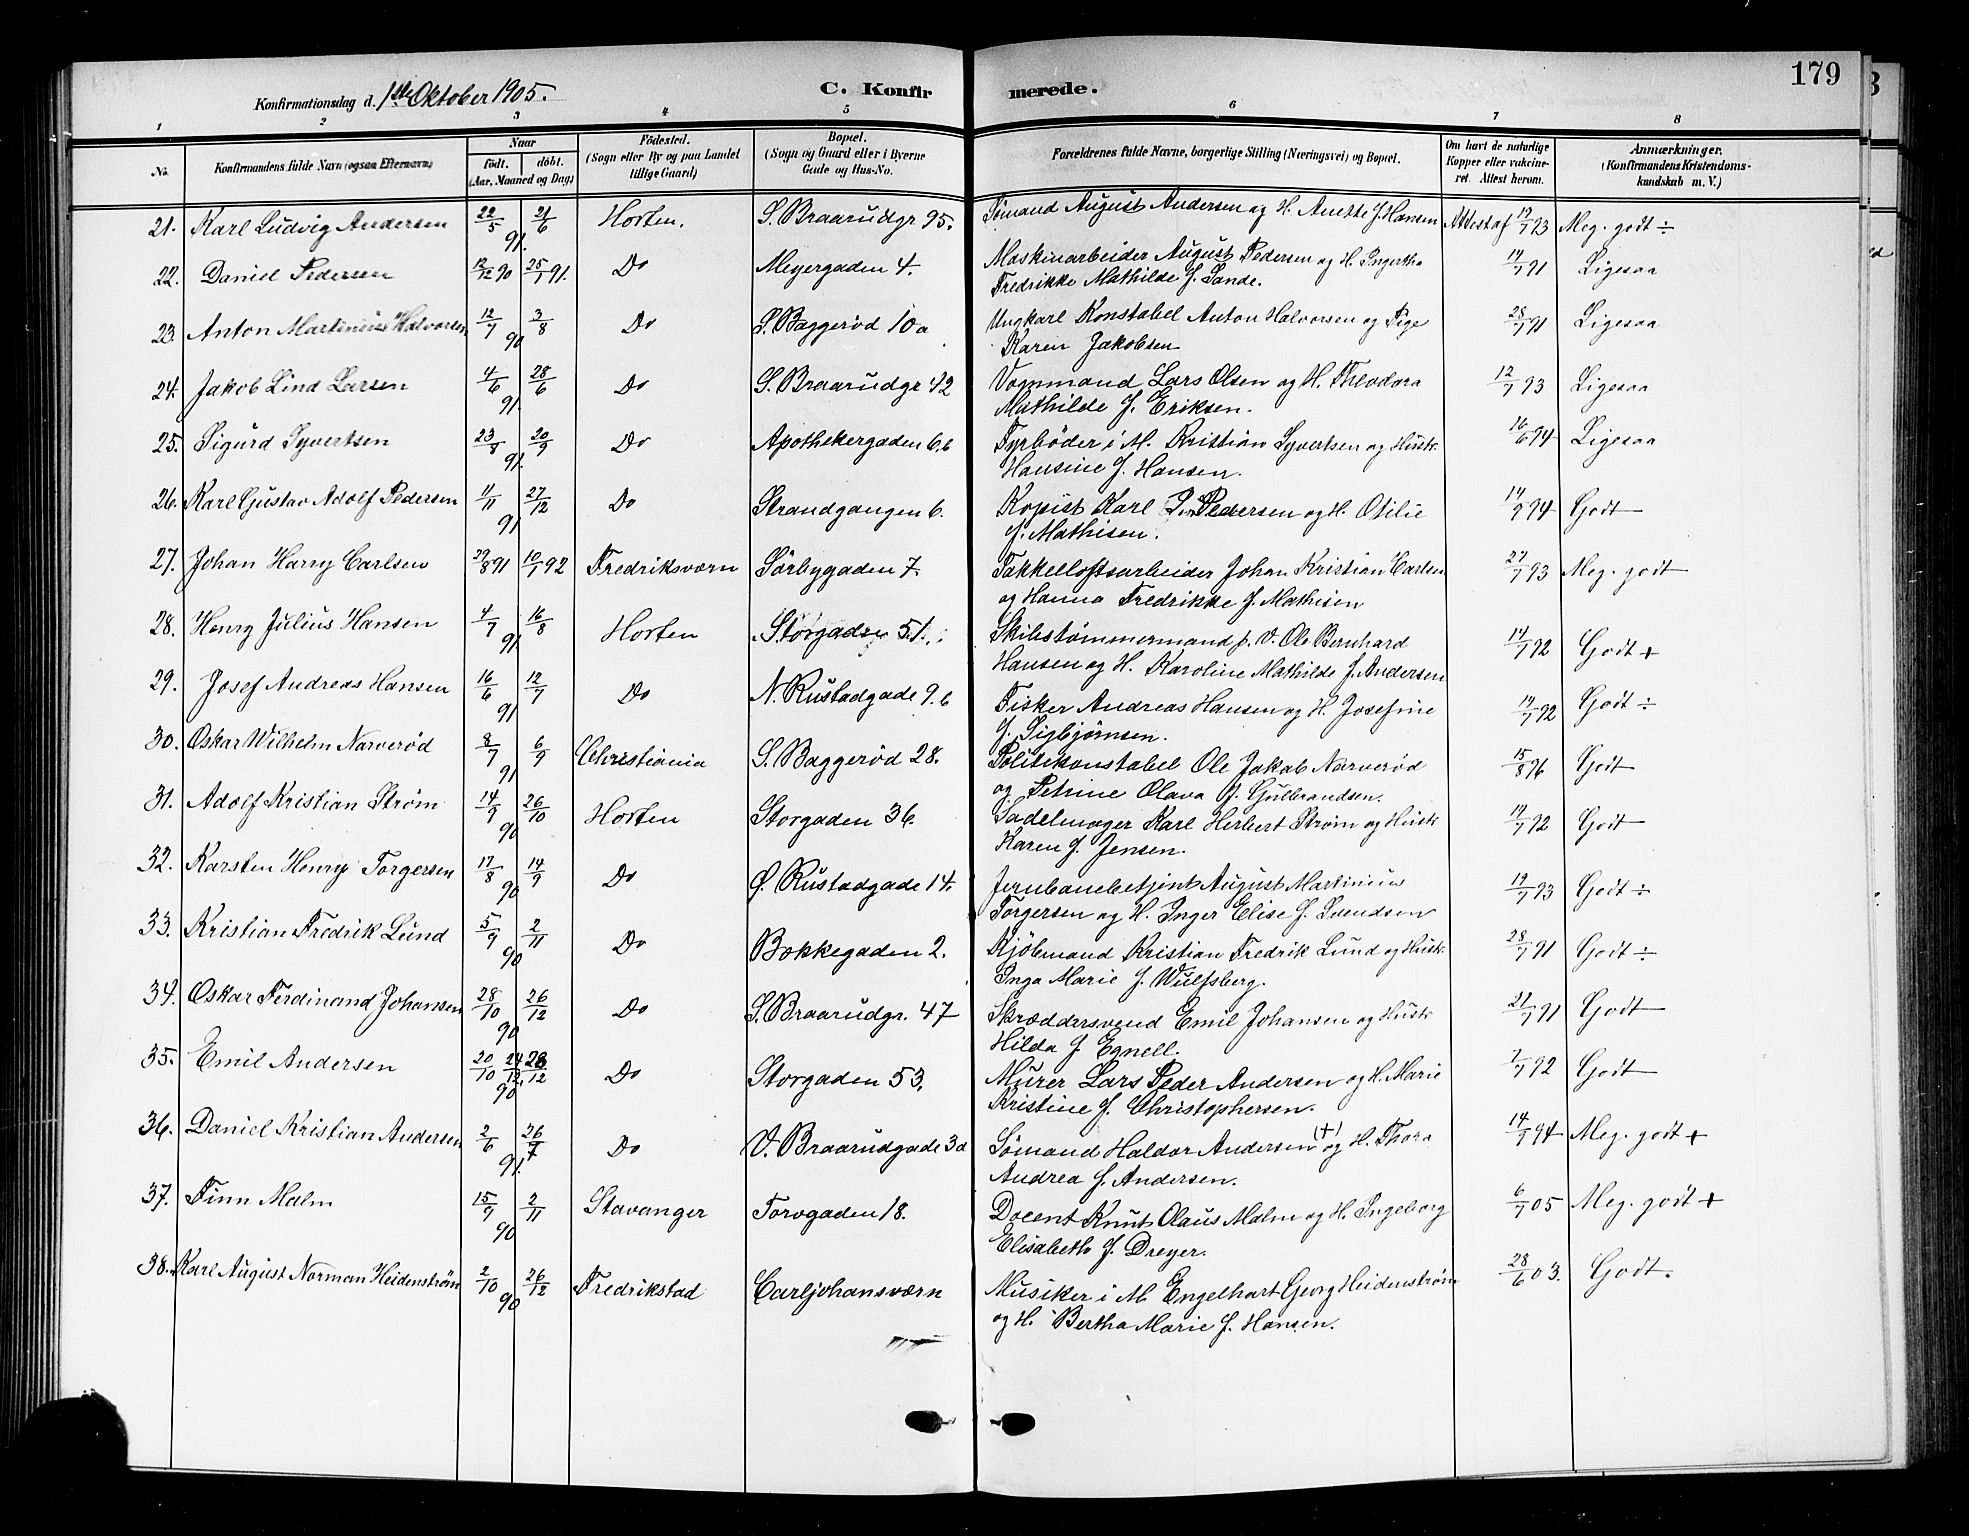 Konfirmationsdag d. 1ste Oktober 1905. C. Konfirmerede. 179
1 2 3 4 5 6 7 8
No. Konfirmandens fulde Navn (ogsaa Efternavn) Naar født. døbt. (Aar, Maaned og Dag) Födested. (Sogn eller By og paa Landet tillige Gaard) Bopæl. (Sogn og Gaard eller i Byerne Gade og Hus-No. Forældrenes fulde Navne, borgerlige Stilling (Næringsvei) og Bopæl. Om havt de naturlige Kopper eller vaccineret. Attest herom. Anmærkninger. (Konfirmandens Kristendomskundskab m. V.)
21. Karl Ludvig Andersen 22/5 21/6 91. Horten. S. Braarudgr 95. Sømand August Andersen og H. Anette f. Hansen Attest af 19/7 93 Meg. godt ÷
22. Daniel Pedersen 12/12 90 25/1 91. Do Meyergaden 4. Maskinarbeider August Pedersen og H. Ingertha
Fredrikke Mathilde f. Sande. 14/7 91 Ligesaa
23. Anton Martinius Halvorsen 12/7 3/8 90 Do S. Baggerød 10a Ungkarl Konstabel Anton Halvorsen og Pige
Karen Jakobsen 28/7 91 Ligesaa
24. Jakob Lind Larsen 4/6 28/6 91. Do S. Braarudgr 42 Vognmand Lars Olsen og H. Theodora
Mathilde f. Eriksen. 12/7 93 Ligesaa
25. Sigurd Syvertsen 23/8 20/9 91. Do Apothekergaden 6.b Fyrbøder i M. Kristian Syvertsen og Hustr.
Hansine f. Hansen. 16/6 94 Ligesaa
26. Karl Gustav Adolf Pedersen 11/11 27/12 91 Do Strandgangen 6. Kopist Karl P. Pedersen og H. Otilie
f. Mathisen. 14/9 94 Godt
27. Johan Harry Carlsen 29/8 91 10/1 92 Fredriksværn Sörbygaden 7. Takkelloftsarbeider Johan Kristian Carlsen
og Hanna Fredrikke f. Mathisen 27/7 93 Meg. godt
28. Henry Julius Hansen 4/7 16/8 91 Horten Storgaden 51. Skibstømmermand p. V. Ole Bernhard
Hansen og H. Karoline Mathilde f. Andersen 14/7 92 Godt +
29. Josef Andreas Hansen 16/6 12/7 91 Do N. Rustadgade 9.b Fisker Andreas Hansen og H. Josefine
f. Sigbjørnsen. 14/7 92 Godt ÷
30. Oskar Wilhelm Narverød 8/7 6/9 91 Christiania S. Baggerød 28. Politikonstabel Ole Jakob Narverød
og Petrine Olava f. Gulbrandsen. 15/8 96 Godt
31. Adolf Kristian Strøm 14/9 26/10 90 Horten Storgaden 36. Sadelmager Karl Herbert Strøm og Hustr
Karen f. Jensen. 14/7 92 Godt
32. Karsten Henry Torgersen 17/8 14/9 90 Do Ø. Rustadgade 14. Jernbanebetjent August Martinius
Torgersen og H. Inger Elise f. Svendsen 19/7 93 Godt ÷
33. Kristian Fredrik Lund 5/9 2/11 90 Do Bokkegaden 2. Kjöbmand Kristian Fredrik Lund og Hustr.
Inga Marie f. Wulfsberg. 28/7 91 Godt ÷
34. Oskar Ferdinand Johansen 28/10 26/12 90 Do S. Braarudgr. 47 Skræddersvend Emil Johansen og Hustr
Hilda f Egnell. 21/7 91 Godt
35. Emil Andersen 20/10 28/12 90 Do Storgaden 53. Murer Lars Peder Andersen og H. Marie
Kristine f. Christophersen. 7/7 92 Godt
36. Daniel Kristian Andersen 2/6 26/7 91. Do V. Braarudgade 3a Sømand Haldor Andersen (+) og H. Thora
Andrea f. Andersen. 14/9 94 Meg. godt +
37. Finn Malm 15/9 2/11 90 Stavanger Torvgaden 18. Docent Knut Olaus Malm og H. Ingeborg
Elisabeth f. Dreyer. 6/7 05 Meg. godt +
38. Karl August Norman Heidenstrøm 2/10 26/12 90 Fredrikstad Carljohansværn Musiker i M. Engelhart Georg Heidenstrøm
og H. Bertha Marie f. Hansen. 28/6 03. Godt.